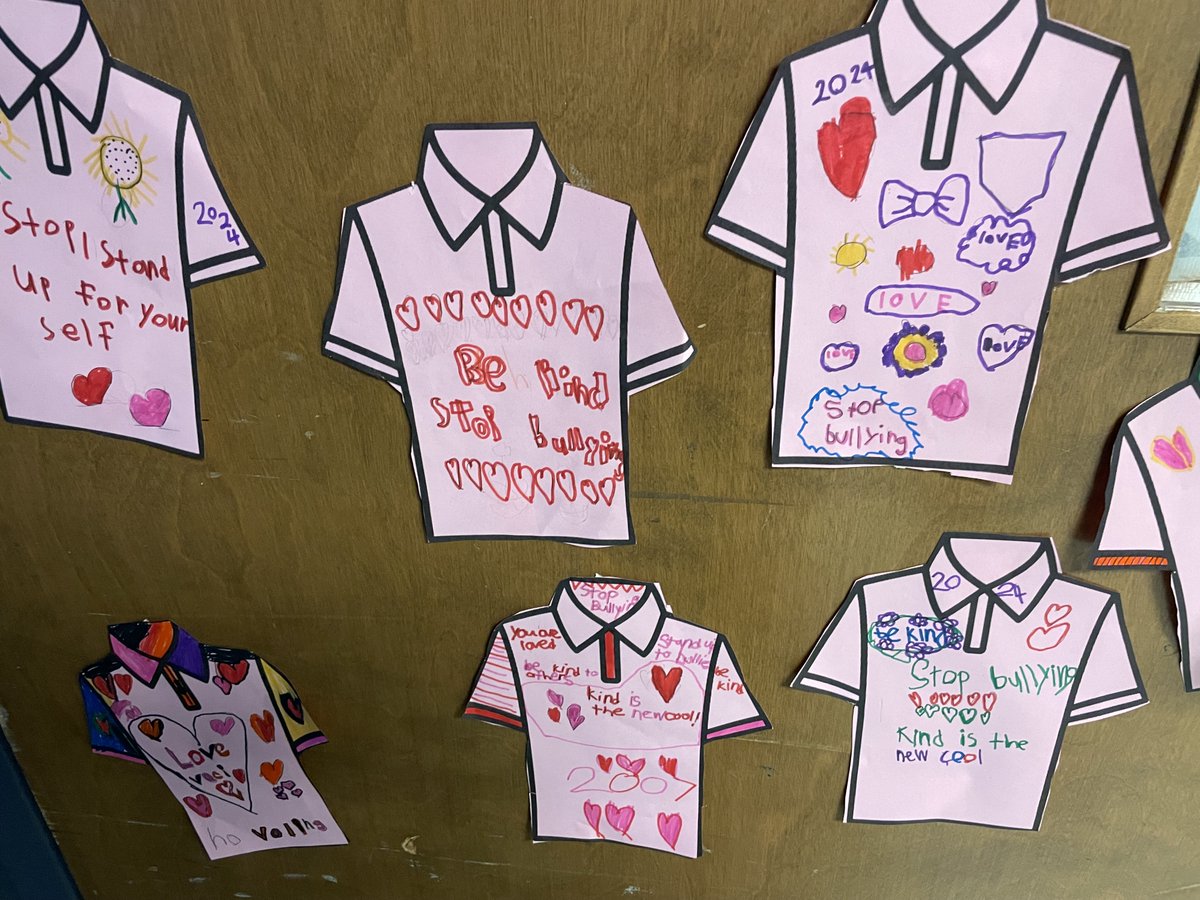 2024
Stop/Stand
up for your
self
Be kind
Stop bullying
2024
loved
love
love
love
Stop
bullying
Love
ho
Stop
Bullying
You are
loved
Stand up
to bullie
be kind to
others
be
kind
kind is
the new cool!
2007
20 24
be kind
Stop bullying
Kind is the
new cool